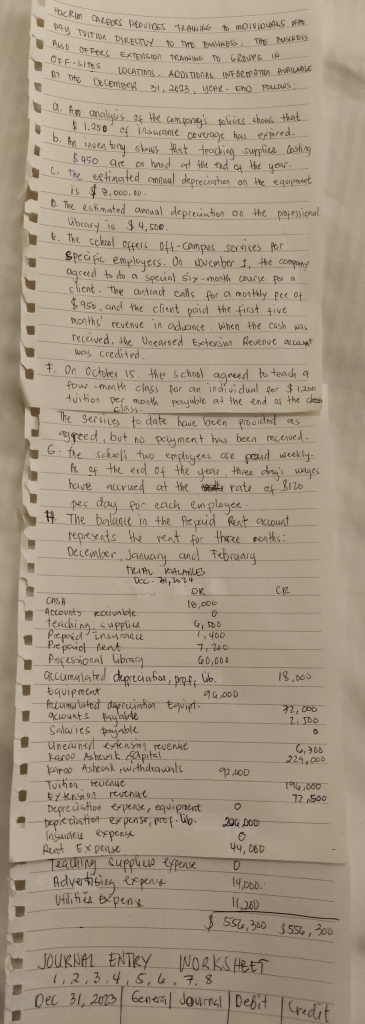 TECKRIM CAREERS PROVIDES TRAINING to INDIVIDUALS who
PAY TUITION DIRECTLY TO THE BUSINESS. THE BUSINESS
ALSO OFFERS EXTENSION TRAINING TO GROUPS IN
OFF-SITES LOCATIONS. ADDITIONAL INFORMATION AVAILABLE
AT THE DECEMBER 31, 2023, YEAR-END FOLLOWS:
a. An analysis of the company's policies shows that
$ 1,250 of insurance coverage has expired.
b. An inventory shows that teaching supplies costing
$ 450 are on hand at the end of the year.
c. The estimated annual depreciation on the equipment
is $ 8,000.00.
D. The estimated annual depreciation on the professional
library is $ 4,500.
E. The school offers off-campus services for
specific employers. On November 1, the company
agreed to do a special six-month course for a
client. The contract calls for a monthly fee of
$ 950, and the client paid the first five
months' revenue in advance. When the cash was
received, the Unearned Extension Revenue account
was credited.
F. On October 15, the school agreed to teach a
four-month class for an individual for $ 1,200
tuition per month payable at the end of the
class.
The services to date have been provided as
agreed, but no payment has been received.
G. the school's two employees are paid weekly.
As of the end of the year, three day's wages
have accrued at the rate of $120
per day for each employee.
H. The balance in the Prepaid Rent account
represents the rent for three months:
December, January and February
TRIAL BALANCES
Dec. 31, 2024
DR CR
CASH 18,000
Accounts receivable 0
Teaching supplies 6,500
Prepaid insurance 1,400
Prepaid Rent 7,200
Professional library 60,000
accumulated depreciation, prof. lib. 18,000
Equipment 96,000
Accumulated depreciation Equipt. 32,000
accounts Payable 2,500
Salaries payable 0
Unearned extension revenue 6,300
Karoo Ashevak, Capital 229,000
Karoo Ashevak, withdrawals 92,000
Tuition revenue 196,000
Extension revenue 72,500
Depreciation expense, equipment 0
Depreciation expense, prof. lib. 206,000
Insurance expense 0
Rent Expense 44,000
Teaching supplies expense 0
Advertising expense 14,000.
Utilities Expense 11,200
$ 556,300 $556,300
JOURNAL ENTRY WORKSHEET
1, 2, 3, 4, 5, 6, 7, 8
Dec 31, 2023 General Journal Debit Credit